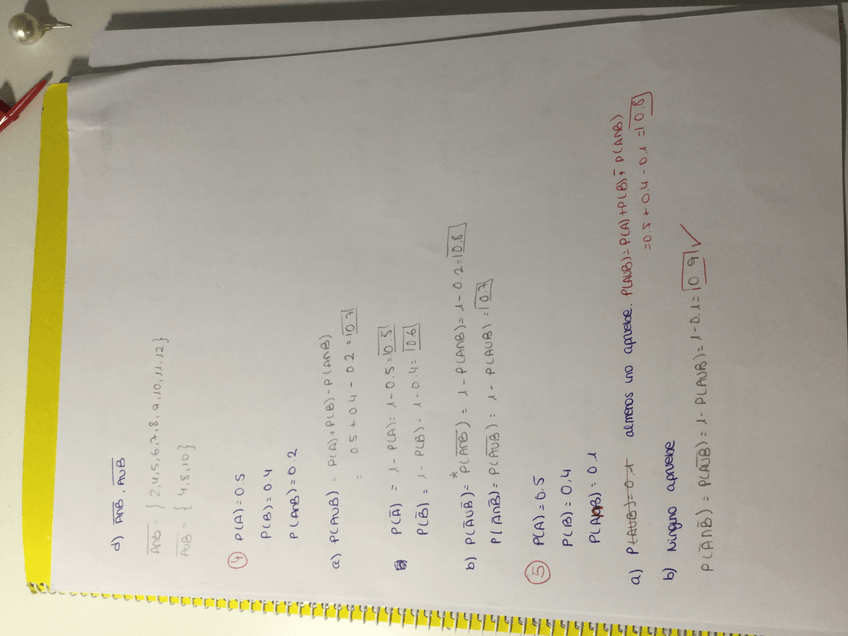 d) A̅∩̅B̅, A̅∪̅B̅
A̅∩̅B̅ = { 2,4,5,6,7,8,9,10,11,12 }
A̅∪̅B̅ = { 4,8,10 }
④ P(A)=0.5
P(B)=0.4
P(A∩B)=0.2
a) P(A∪B) = P(A)+P(B)-P(A∩B)
= 0.5+0.4-0.2=0.7
P(A̅) = 1-P(A)=1-0.5=0.5
P(B̅) = 1-P(B)=1-0.4=0.6
b) P(A̅∪B̅)=* P(A̅∩̅B̅)=1-P(A∩B)=1-0.2=0.8
P(A̅∩B̅)=P(A̅∪̅B̅)=1-P(A∪B)=0.7
⑤ P(A)=0.5
P(B)=0.4
P(A∩B)=0.1
a) P(A∪B)=0.1 almenos uno apruebe. P(A∪B)=P(A)+P(B)-P(A∩B)
=0.5+0.4-0.1=0.8
b) Ninguno apruebe
P(A̅∩B̅)=P(A̅∪̅B̅)=1-P(A∪B)=1-0.1=0.9 ✓